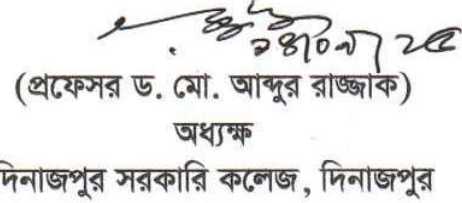 (প্রফেসর ড. মো. আব্দুর রাজ্জাক)
অধ্যক্ষ
দিনাজপুর সরকারি কলেজ, দিনাজপুর